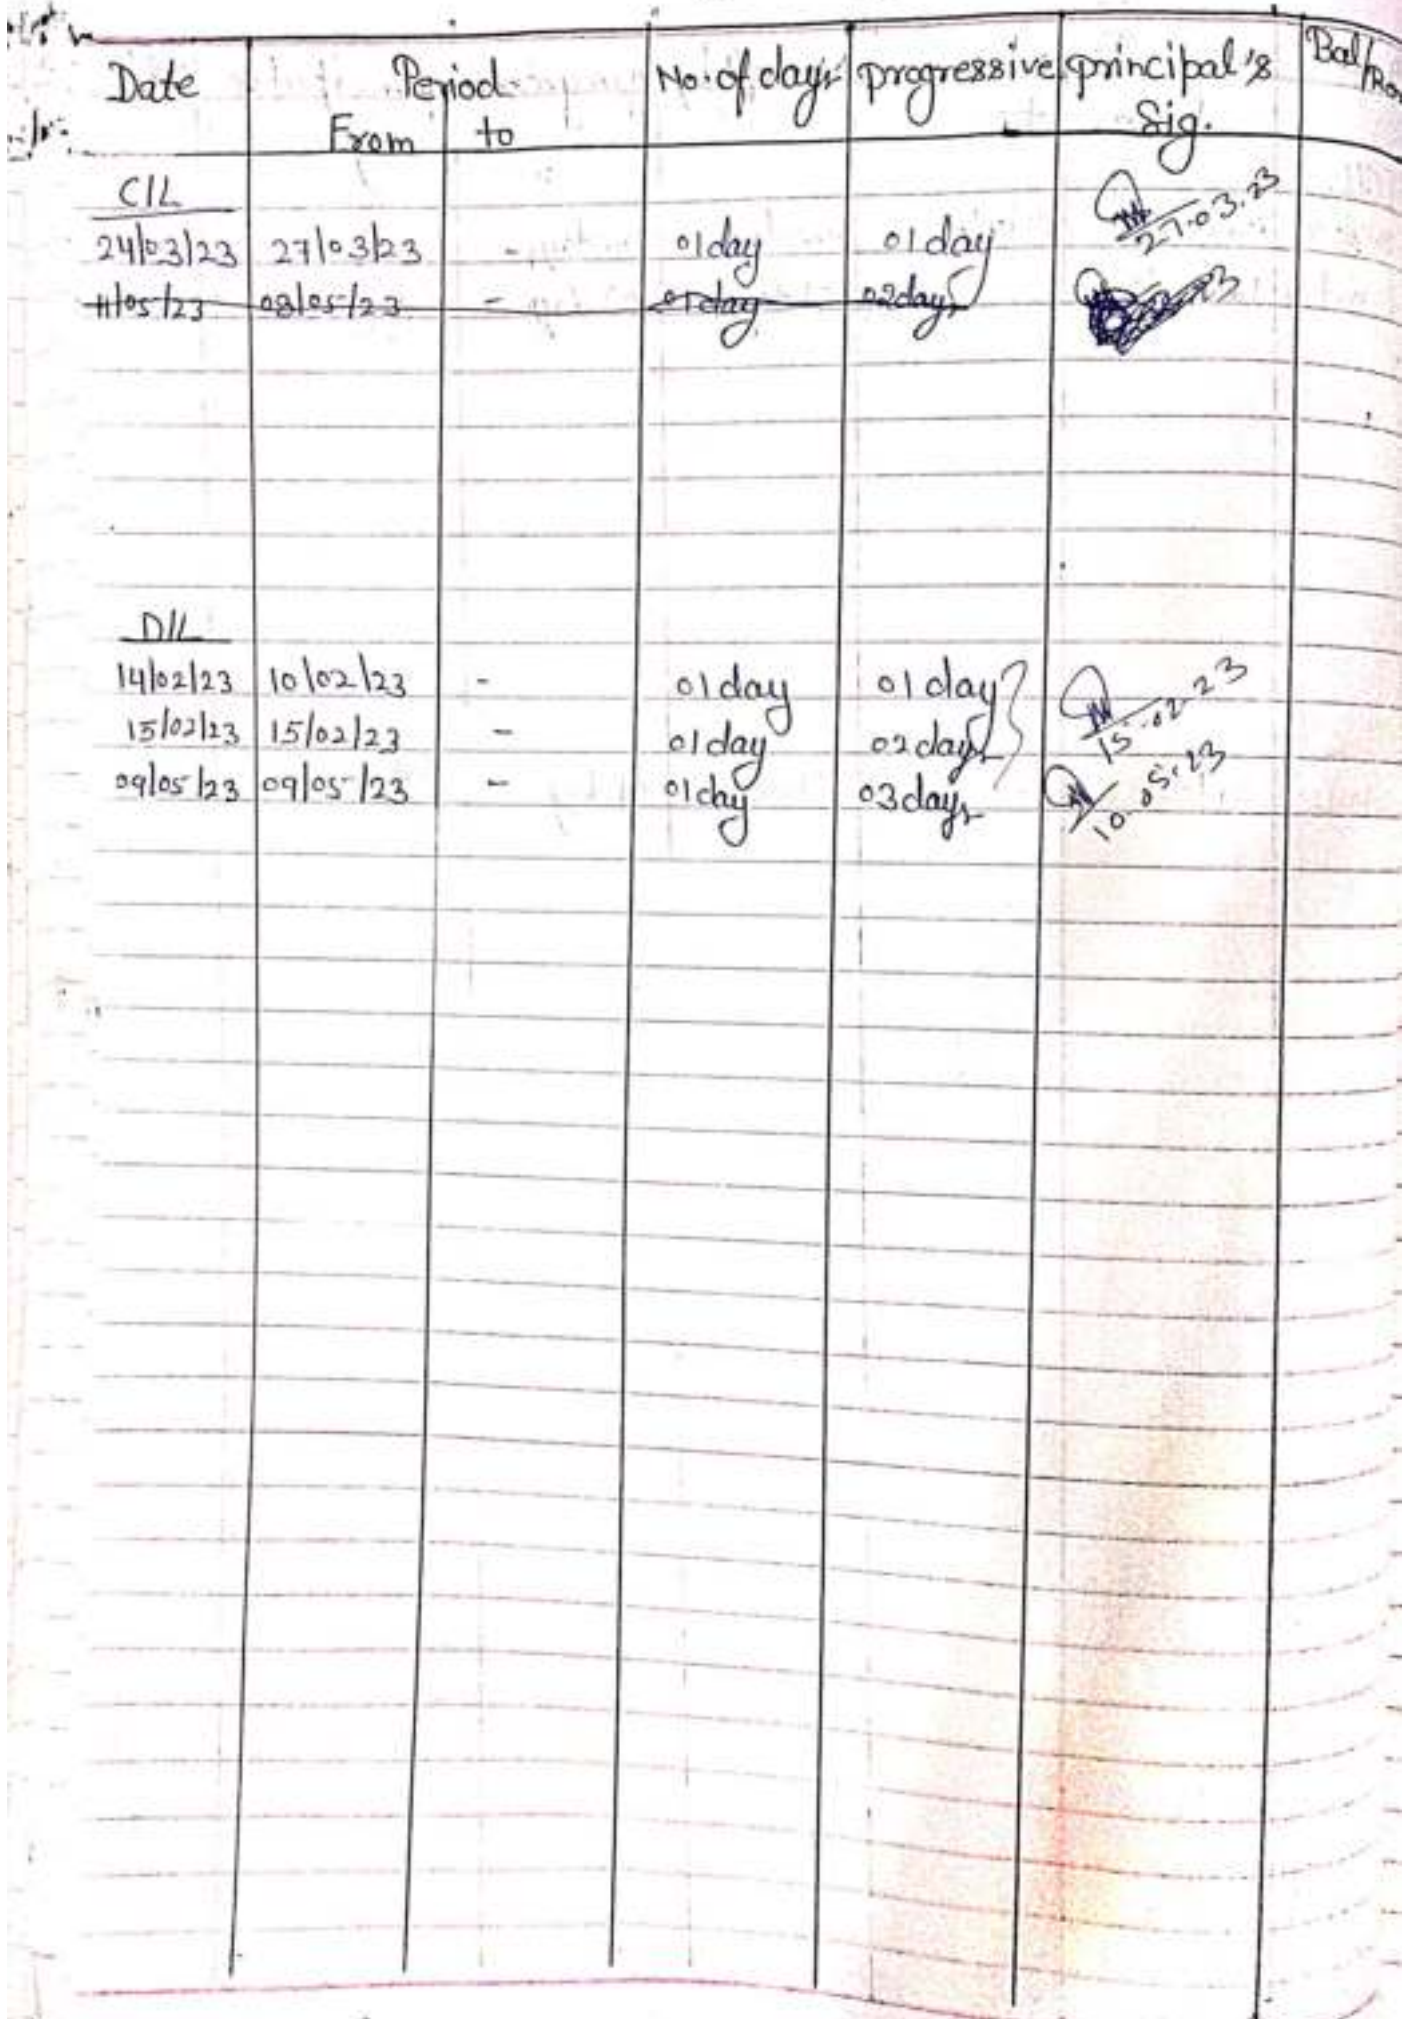 Date Period No. of days progressive principal's Bal/
From to Sig.
C/L
24/03/23 27/03/23 - 01 day 01 day 27.03.23
11/05/23 08/05/23 - 01 day 02 days
D/L
14/02/23 10/02/23 - 01 day 01 day
15/02/23 15/02/23 - 01 day 02 days 15.02.23
09/05/23 09/05/23 - 01 day 03 days 10.05.23